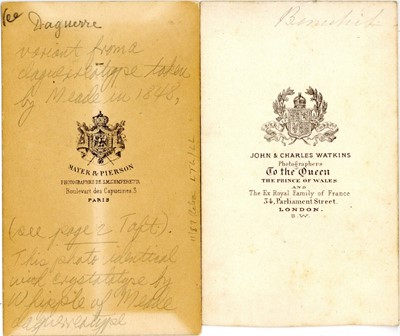 See Daguerre
variant from a
daguerreotype taken
by Meade in 1848,
MAYER & PIERSON
PHOTOGRAPHES DE S.M. L'EMPEREUR
Boulevart des Capucines, 3
PARIS
(see page 2 Taft).
This photo identical
with crystalotype by
Whipple of Meade
daguerreotype
JOHN & CHARLES WATKINS
Photographers
To the Queen
THE PRINCE OF WALES
AND
The Ex Royal Family of France
34, Parliament Street.
LONDON.
S.W.